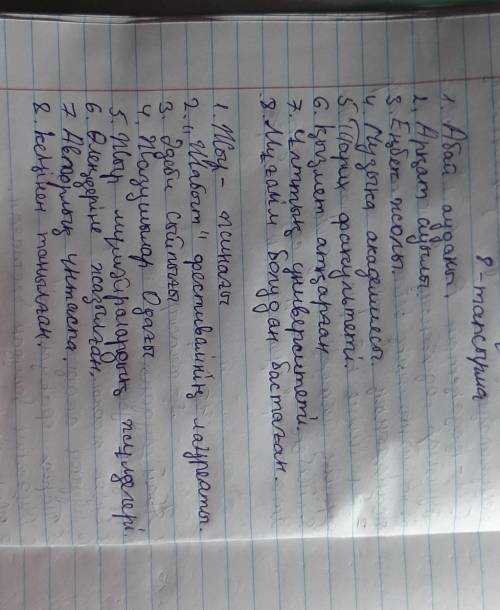 8-тапсырма
1. Абай ауданы,
2. Арқат ауылы.
3. Еңбек жолы.
4. Музыка академиесы.
5. Тарих факультеті.
6. Қызмет атқарған
7. Ұлттық университеті.
8. Мұғалім болудан бастаған.
1. Жыр - жинағы
2. "Шабыт" фестивалінің лауреаты.
3. Әдеби сыйлығы
4. Жазушылар Одағы
5. Жыр мүшәйралардың жүлдегері.
6. Өлеңдеріне жазылған.
7. Авторлық үнтаспа.
8. Кеңінен танылған.